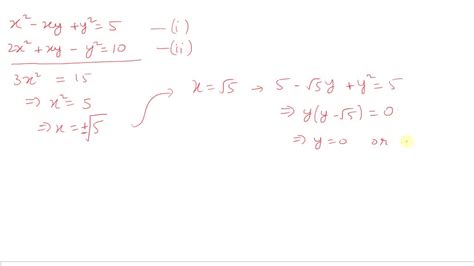 x² - xy + y² = 5 — (i)
2x² + xy - y² = 10 — (ii)
3x² = 15
⇒ x² = 5
⇒ x = ±√5
x = √5 → 5 - √5y + y² = 5
⇒ y(y - √5) = 0
⇒ y = 0 or